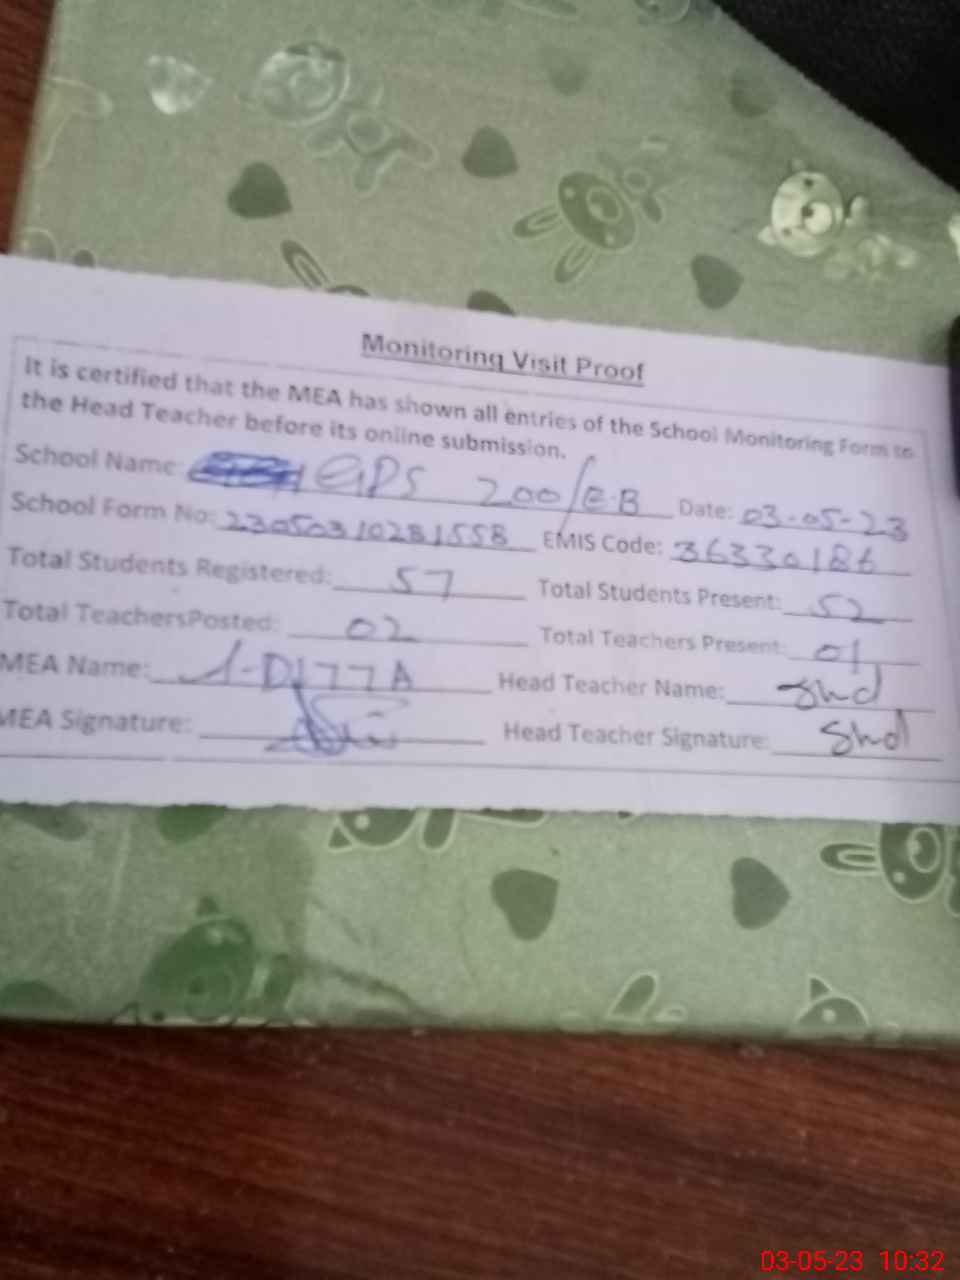 Monitoring Visit Proof
It is certified that the MEA has shown all entries of the School Monitoring Form to
the Head Teacher before its online submission.
School Name: GPS 200/E.B Date: 03-05-23
School Form No: 23050310281558 EMIS Code: 36330186
Total Students Registered: 57 Total Students Present: 52
Total TeachersPosted: 02 Total Teachers Present: 01
MEA Name: Head Teacher Name: Shd
MEA Signature: Head Teacher Signature: Shd
03-05-23 10:32